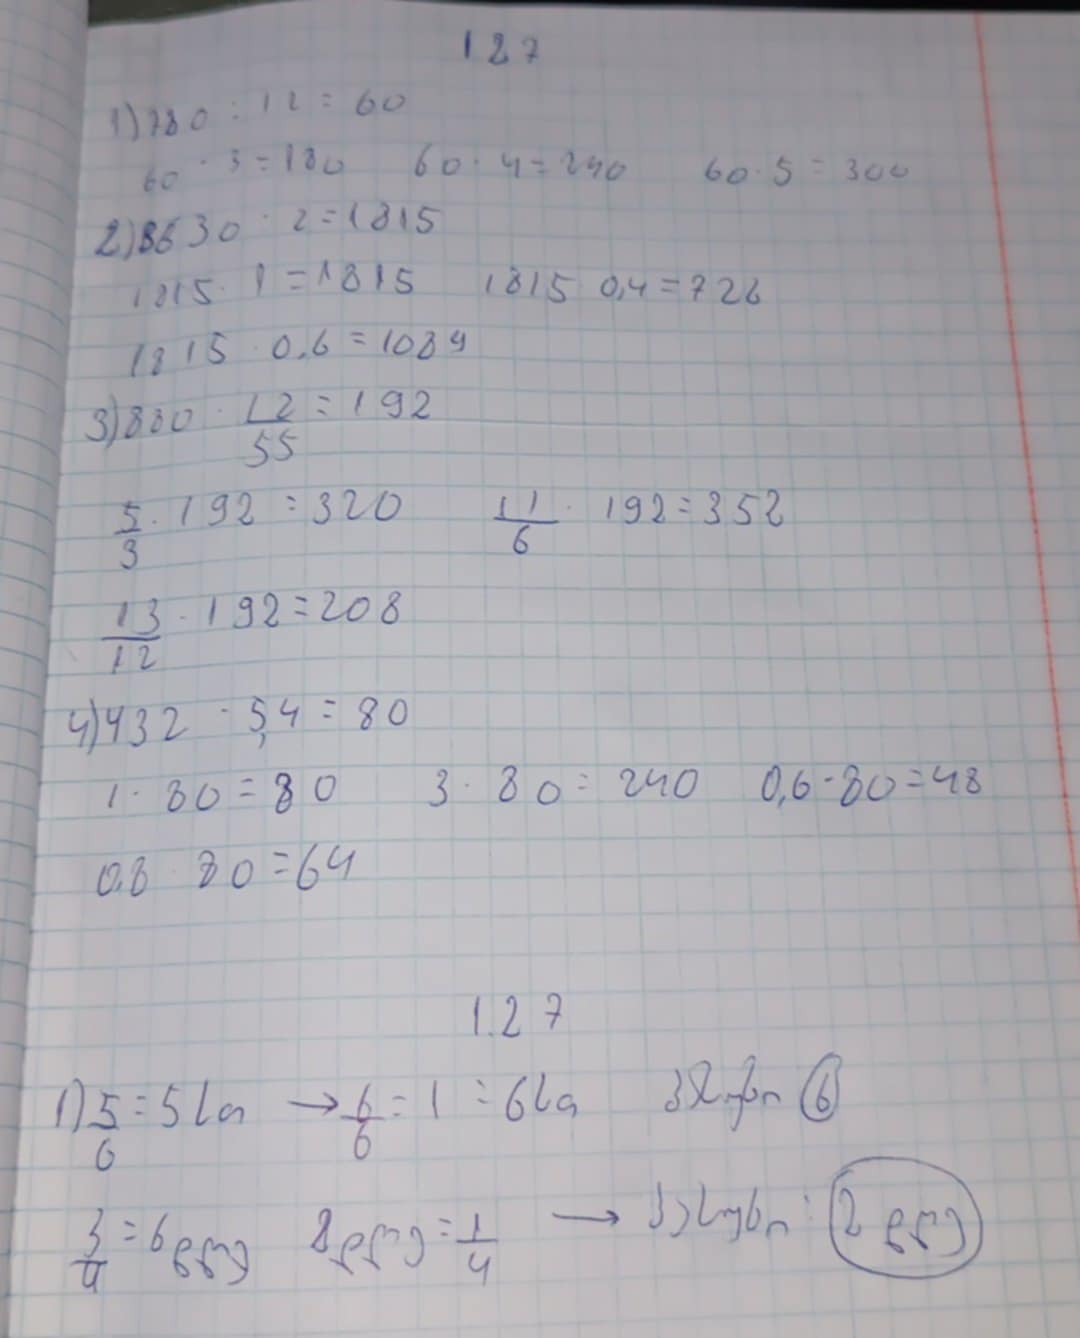 127
1) 780 : 12 = 60
60 · 3 = 180 60 · 4 = 240 60 · 5 = 300
2) 3630 : 2 = 1815
1815 · 1 = 1815 1815 · 0,4 = 726
1815 · 0,6 = 1089
3) 880 · 12/55 = 192
5/3 · 192 = 320 11/6 · 192 = 352
13/12 · 192 = 208
4) 432 : 5,4 = 80
1 · 80 = 80 3 · 80 = 240 0,6 · 80 = 48
0,8 · 80 = 64
1.27
1) 5/6 = 5სთ → 6/6 = 1 = 6სთ პასუხი 6
3/4 = 6დღე 2დღე = 1/4 → პასუხი : 2 დღე